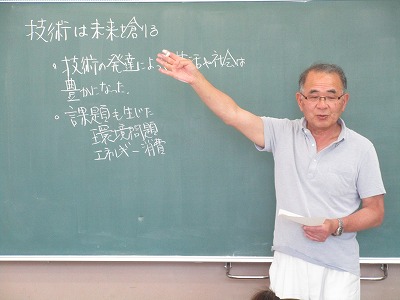 技術は未来を創る
・技術の発達によって や社会は
豊かになった.
・課題も生じた
環境問題
エネルギー消費